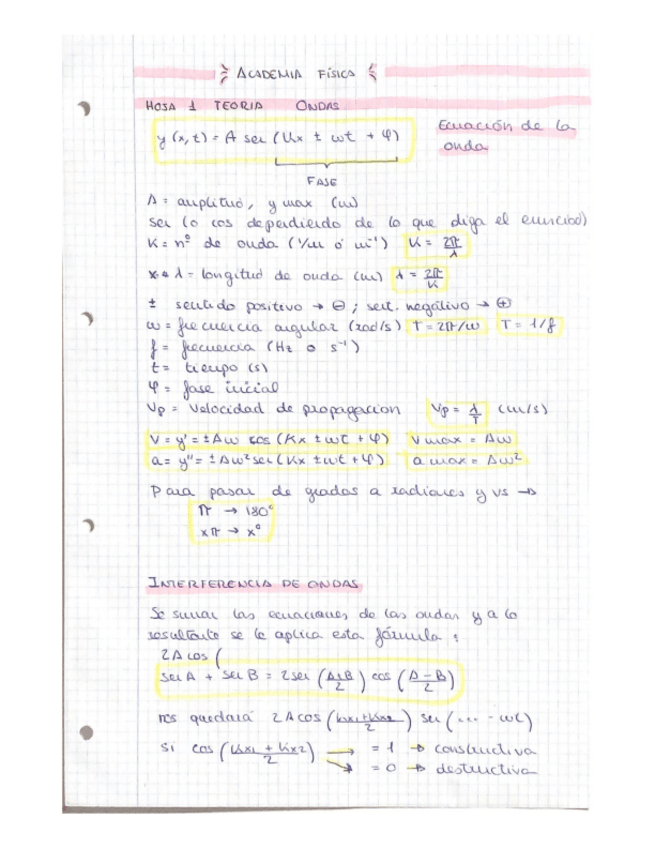 ACADEMIA FÍSICA
HOJA 1 TEORIA ONDAS
y (x, t) = A sen (Kx ± ωt + φ)
Ecuación de la
onda
FASE
A = amplitud, y max (m)
sen (o cos dependiendo de lo que diga el enunciado)
K = nº de onda (1/m ó m⁻¹) K = 2π/λ
λ = longitud de onda (m) λ = 2π/K
± sentido positivo → ⊖ ; sent. negativo → ⊕
ω = frecuencia angular (rad/s) T = 2π/ω T = 1/f
f = frecuencia (Hz o s⁻¹)
t = tiempo (s)
φ = fase inicial
Vp = velocidad de propagacion Vp = λ/T (m/s)
V = y' = ± Aω cos (Kx ± ωt + φ) V max = Aω
a = y'' = ± Aω² sen (Kx ± ωt + φ) a max = Aω²
Para pasar de grados a radianes y vs →
π → 180°
xπ → x°
INTERFERENCIA DE ONDAS
Se suman las ecuaciones de las ondas y a lo
resultante se le aplica esta fórmula :
2A cos (
sen A + sen B = 2 sen (A+B/2) cos (A-B/2)
nos quedará 2A cos (kx1+kx2/2) sen (... - ωt)
Si cos (kx1 + kx2/2) → = 1 → constructiva
→ = 0 → destructiva